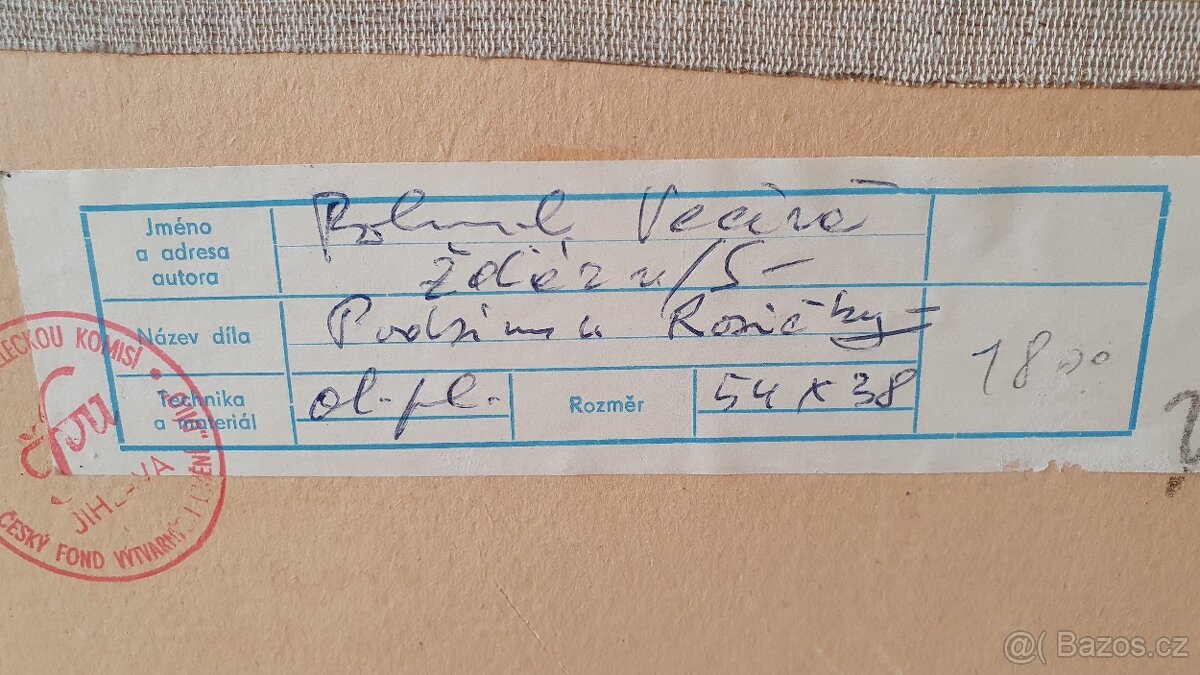 Jméno
a adresa
autora
Bohumil Večeřa
Žďár n/S-
Název díla
Podzim u Rosičky
Technika
a materiál
ol. pl.
Rozměr
54 x 38
1800
LECKOU KOMISÍ
JIHLAVA
ČESKÝ FOND VÝTVARNÝCH UMĚNÍ
"DÍLO"
@( Bazos.cz